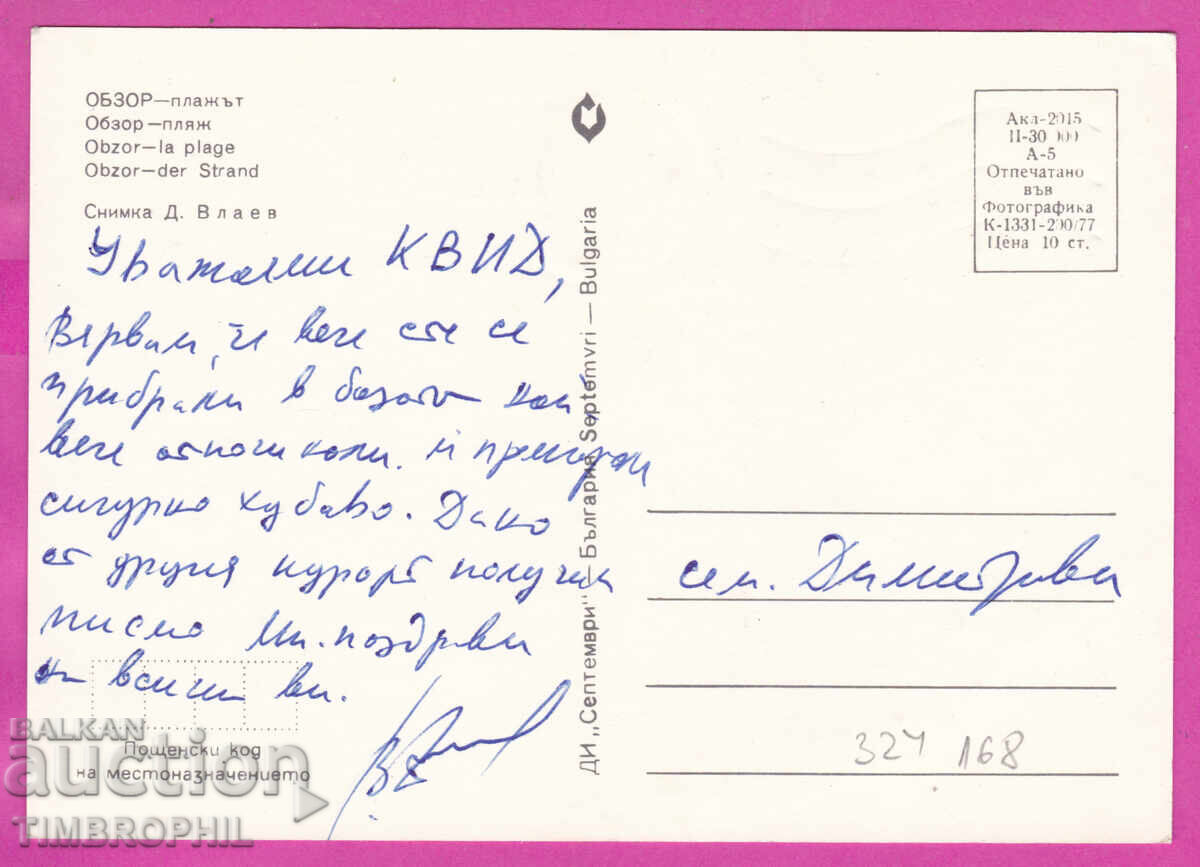 ОБЗОР—плажът
Обзор—пляж
Obzor—la plage
Obzor—der Strand
Снимка Д. Влаев
Уважаеми КВИД,
Вярвам, че вече сте се
прибрали в базата
вече отпочинали. и
сигурно хубаво. Дано
от другия курорт получим
писмо Мн. поздрави
на всички ви.
Пощенски код
на местоназначението
ДИ „Септември" — България Septemvri — Bulgaria
Акд-2015
П-30 000
А-5
Отпечатано
във
Фотографика
К-1331-200/77
Цена 10 ст.
сем. Димитрови
324 168
BALKAN
auction
TIMBROPHIL